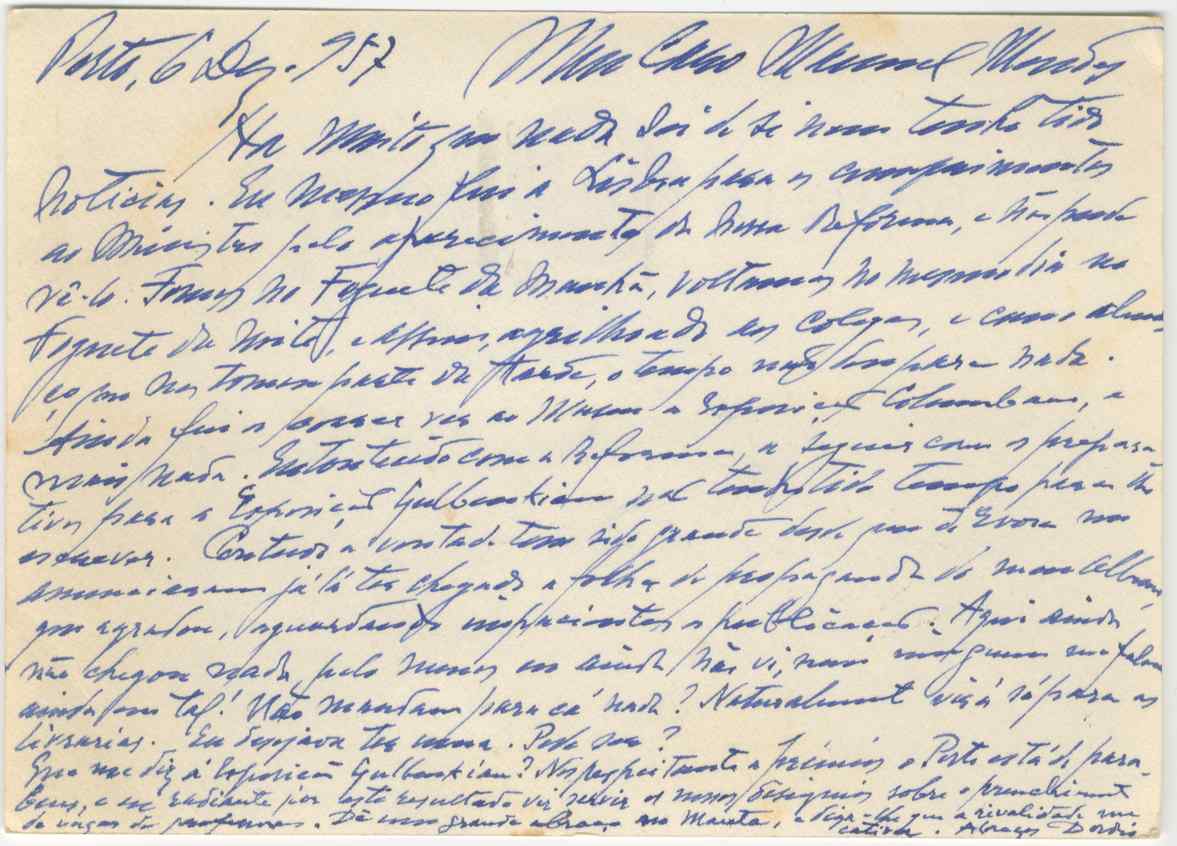 Porto, 6 Dez. 957 Meu Caro Manuel Mendes
Há muito que nada sei de si nem tenho tido
notícias. Eu mesmo fui a Lisboa para os cumprimentos
ao Ministro pelo aparecimento da nossa Reforma, e não pude
vê-lo. Fomos no Foguete da manhã, voltamos no mesmo dia no
Foguete da noite, e assim, agrilhoado aos colegas, e como almo-
ço que nos tomou parte da tarde, o tempo não deu para nada.
Ainda fui a correr ver ao Museu a Exposição Columbano, e
mais nada. Entontecido com a Reforma, a seguir com os prepara-
tivos para a Exposição Gulbenkian mal tenho tido tempo para lhe
escrever. Contudo a vontade tem sido grande desde que de Évora me
anunciaram já lá ter chegado a folha de propaganda do meu album,
que agradou, aguardando impacientes a publicação. Aqui ainda
não chegou nada, pelo menos eu ainda não vi, nem ninguem me falou
ainda em tal! Não mandam para cá nada? Naturalmente virá só para as
livrarias. Eu desejava ter uma. Pode ser?
Que me diz á Exposição Gulbenkian? No respeitante a prémios o Porto está de para-
bens, e eu radiante por este resultado vir servir os nossos designios sobre o preenchimento
de vagas de professores. Dê um grande abraço ao Maceta, e diga-lhe que a rivalidade me
cativa. Abraços Dordio